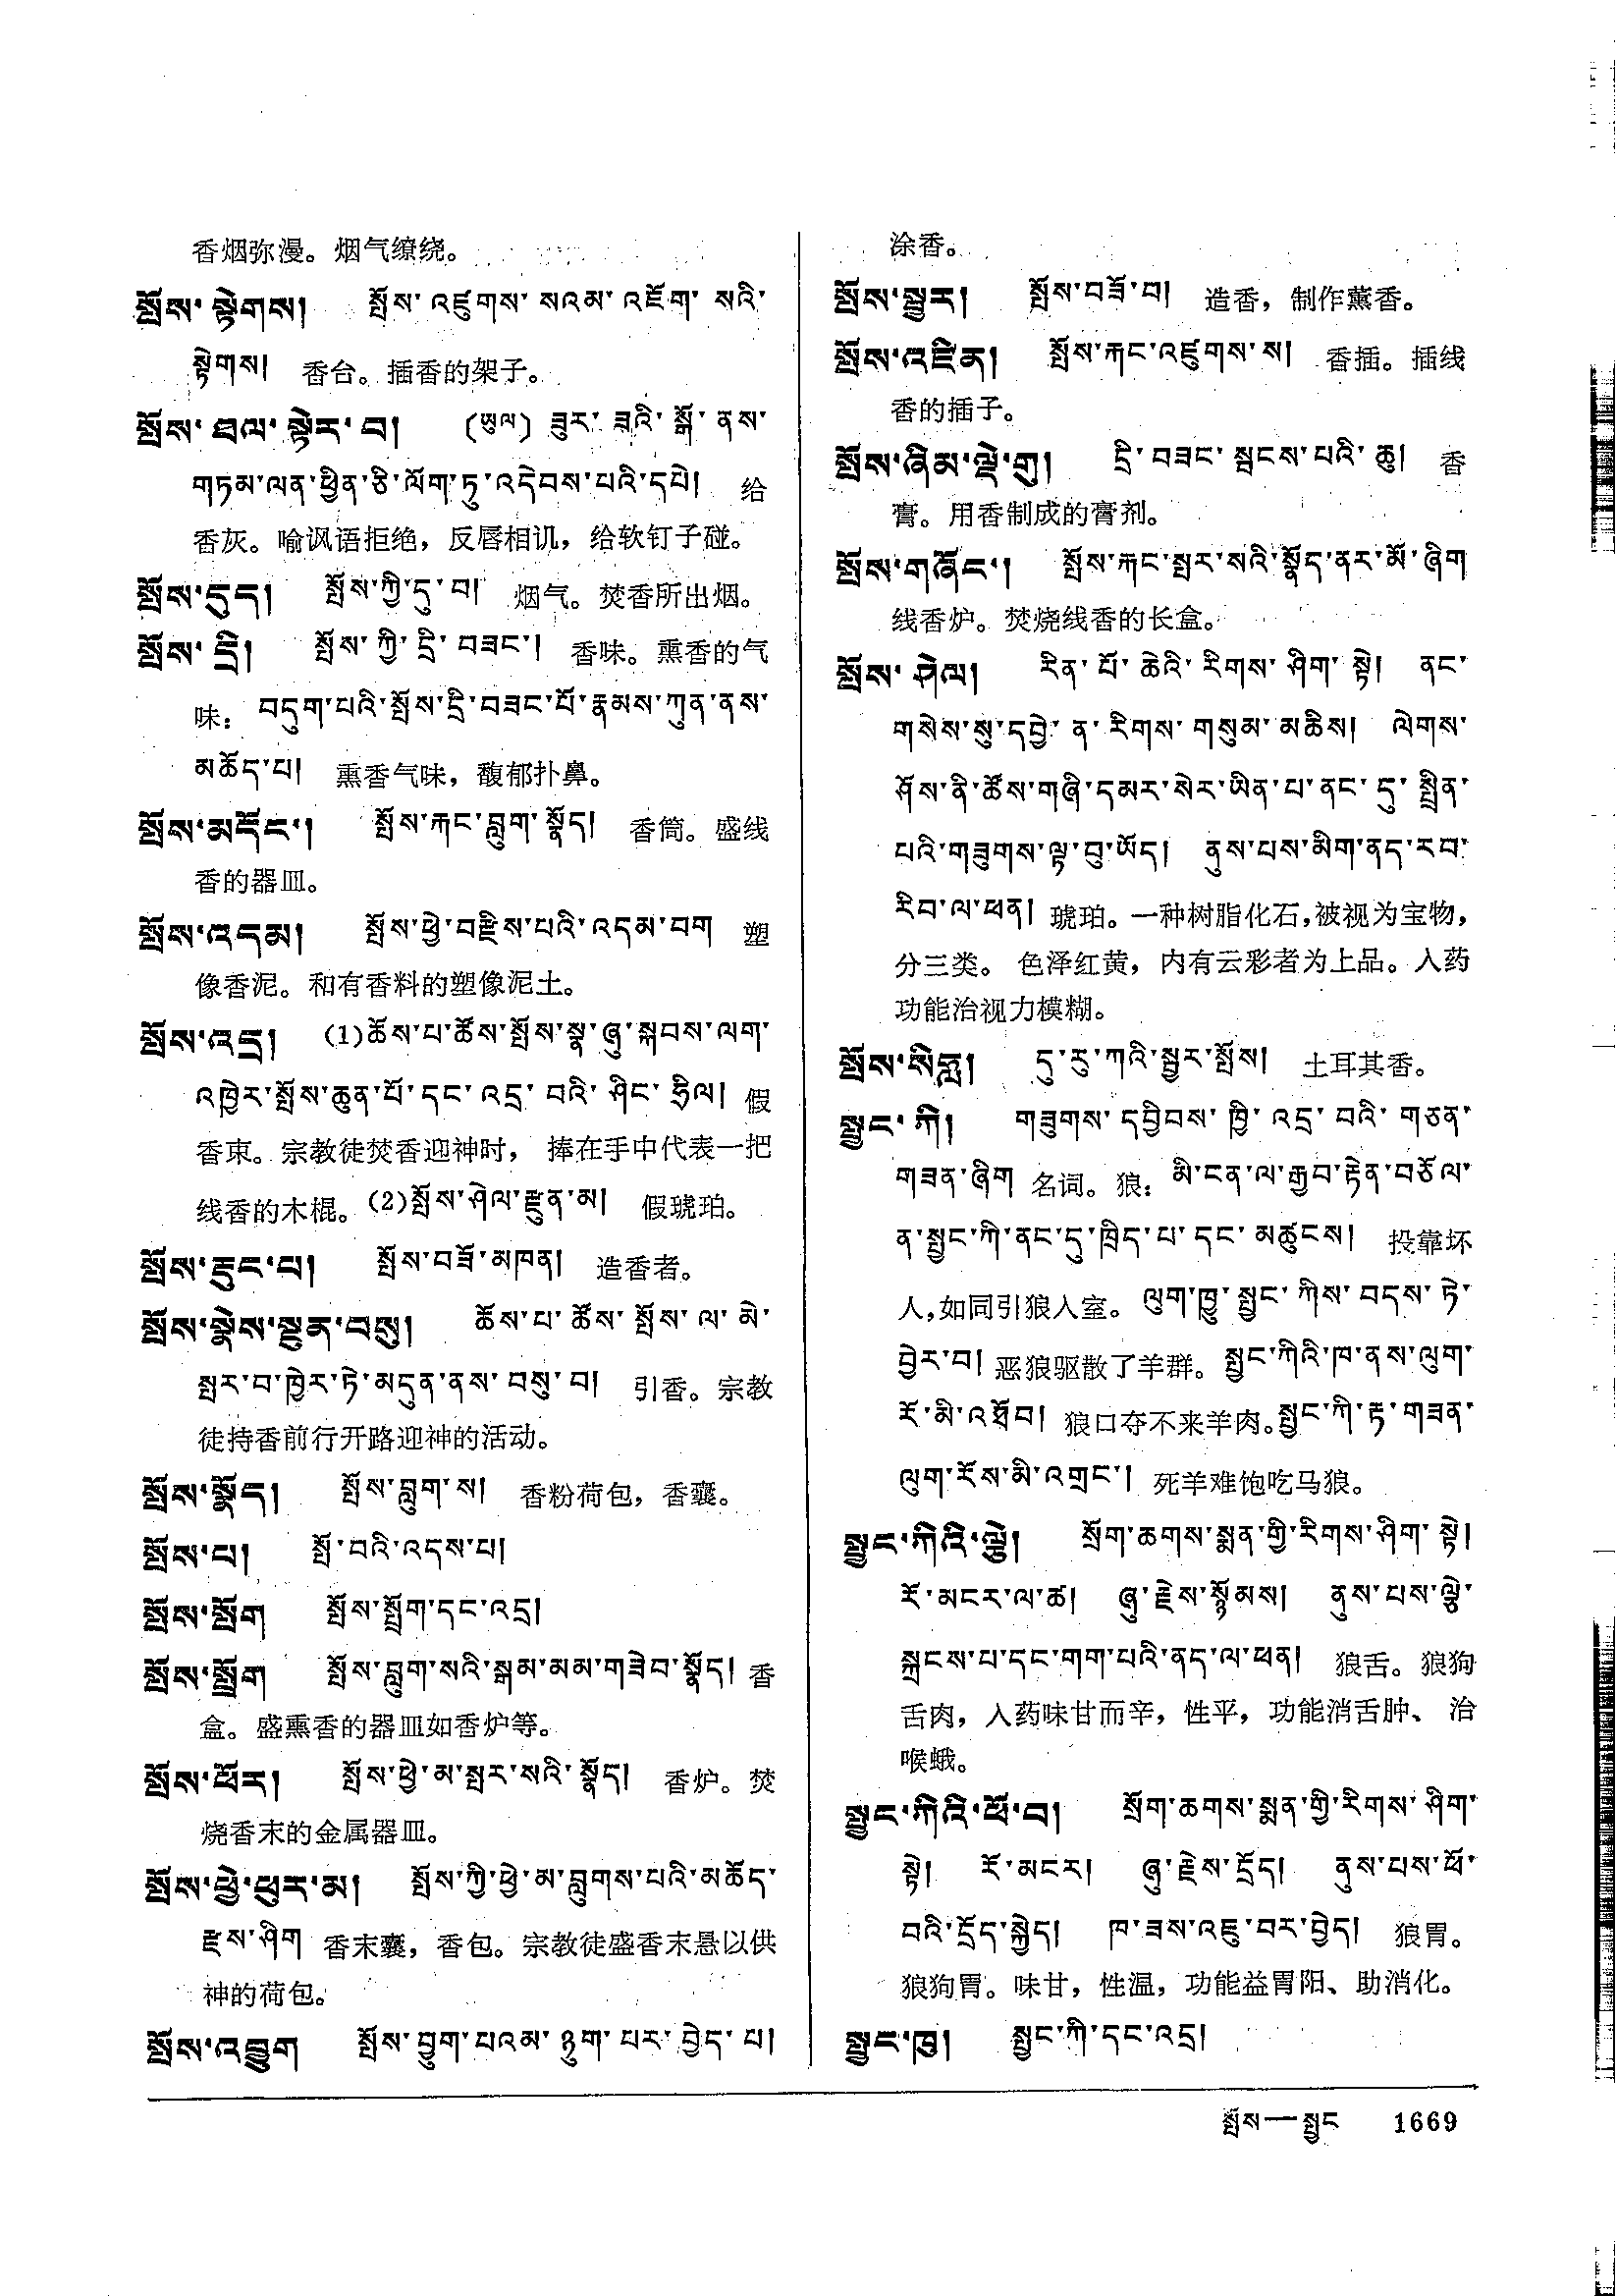 香烟弥漫。烟气缭绕。
སྤོས་སྟེགས། སྤོས་འཛུགས་སའམ་འཇོག་སའི་
སྟེགས། 香台。插香的架子。
སྤོས་ཐལ་སྟེར་བ། (ཡུལ) ཟུར་ཟའི་སྒོ་ནས་
གཏམ་ལན་ཕྱིན་ཅི་ལོག་ཏུ་འདེབས་པའི་དཔེ། 给
香灰。喻讽语拒绝，反唇相讥，给软钉子碰。
སྤོས་དུད། སྤོས་ཀྱི་དུ་བ། 烟气。焚香所出烟。
སྤོས་དྲི། སྤོས་ཀྱི་དྲི་བཟང་། 香味。熏香的气
味： བདུག་པའི་སྤོས་དྲི་བཟང་པོ་རྣམས་ཀུན་ནས་
མཆོད་པ། 熏香气味，馥郁扑鼻。
སྤོས་མདོང་། སྤོས་རྐང་བླུག་སྣོད། 香筒。盛线
香的器皿。
སྤོས་འདམ། སྤོས་ཕྱེ་བརྫིས་པའི་འདམ་བག 塑
像香泥。和有香料的塑像泥土。
སྤོས་འདྲ། (1)ཆོས་པ་ཚོས་སྤོས་སྣ་ཞུ་སྐབས་ལག་
འཁྱེར་སྤོས་ཆུན་པོ་དང་འདྲ་བའི་ཤིང་ཧྲིལ། 假
香束。宗教徒焚香迎神时， 捧在手中代表一把
线香的木棍。(2)སྤོས་ཤེལ་རྫུན་མ། 假琥珀。
སྤོས་རྡུང་པ། སྤོས་བཟོ་མཁན། 造香者。
སྤོས་སྣེས་སྔུན་བསུ། ཆོས་པ་ཚོས་སྤོས་ལ་མེ་
སྤར་བ་ཁྱེར་ཏེ་མདུན་ནས་བསུ་བ། 引香。宗教
徒持香前行开路迎神的活动。
སྤོས་སྣོད། སྤོས་བླུག་ས། 香粉荷包，香囊。
སྤོས་པ། སྤོ་བའི་འདས་པ།
སྤོས་སྤོག སྤོས་སྤྲོག་དང་འདྲ།
སྤོས་སྤྲོག སྤོས་བླུག་སའི་སྒམ་མམ་གཟེབ་སྣོད། 香
盒。盛熏香的器皿如香炉等。
སྤོས་ཕོར། སྤོས་ཕྱེ་མ་སྤར་སའི་སྣོད། 香炉。焚
烧香末的金属器皿。
སྤོས་ཕྱེ་ཕུར་མ། སྤོས་ཀྱི་ཕྱེ་མ་བླུགས་པའི་མཆོད་
རྫས་ཤིག 香末囊，香包。宗教徒盛香末悬以供
神的荷包。
སྤོས་འབྱུག སྤོས་བྱུག་པའམ་ཉུག་པར་བྱེད་པ།
涂香。
སྤོས་སྦྱར། སྤོས་བཟོ་བ། 造香，制作薰香。
སྤོས་འཛིན། སྤོས་རྐང་འཛུགས་ས། 香插。插线
香的插子。
སྤོས་ཞིམ་ལྡེ་གུ། དྲི་བཟང་སྦངས་པའི་ཆུ། 香
膏。用香制成的膏剂。
སྤོས་གཞོང་། སྤོས་རྐང་སྤར་སའི་སྣོད་ནར་མོ་ཞིག
线香炉。焚烧线香的长盒。
སྤོས་ཤེལ། རིན་པོ་ཆེའི་རིགས་ཤིག་སྟེ། ནང་
གསེས་སུ་དབྱེ་ན་རིགས་གསུམ་མཆིས། ལེགས་
ཤོས་ནི་ཚོས་གཞི་དམར་སེར་ཡིན་པ་ནང་དུ་སྤྲིན་
པའི་གཟུགས་ལྟ་བུ་ཡོད། ནུས་པས་མིག་ནད་རབ་
རིབ་ལ་ཕན། 琥珀。一种树脂化石,被视为宝物，
分三类。 色泽红黄，内有云彩者为上品。入药
功能治视力模糊。
སྤོས་སིཧླ། དུ་རུ་ཀའི་སྦྱར་སྤོས། 土耳其香。
སྤྱང་ཀི། གཟུགས་དབྱིབས་ཁྱི་འདྲ་བའི་གཅན་
གཟན་ཞིག 名词。狼： མི་ངན་ལ་རྒྱབ་རྟེན་བཅོལ་
ན་སྤྱང་ཀི་ནང་དུ་ཁྲིད་པ་དང་མཚུངས། 投靠坏
人,如同引狼入室。 ལུག་ཁྱུ་སྤྱང་ཀིས་བདས་ཏེ་
བྱེར་བ། 恶狼驱散了羊群。 སྤྱང་ཀིའི་ཁ་ནས་ལུག་
རོ་མི་འཐོབ། 狼口夺不来羊肉。སྤྱང་ཀི་རྟ་གཟན་
ལུག་རོས་མི་འགྲང་། 死羊难饱吃马狼。
སྤྱང་ཀིའི་ལྕེ། སྲོག་ཆགས་སྨན་གྱི་རིགས་ཤིག་སྟེ།
རོ་མངར་ལ་ཚ། ཞུ་རྗེས་སྙོམས། ནུས་པས་ལྕེ་
སྐྲངས་པ་དང་གག་པའི་ནད་ལ་ཕན། 狼舌。狼狗
舌肉，入药味甘而辛，性平，功能消舌肿、 治
喉蛾。
སྤྱང་ཀིའི་ཕོ་བ། སྲོག་ཆགས་སྨན་གྱི་རིགས་ཤིག་
སྟེ། རོ་མངར། ཞུ་རྗེས་དྲོད། ནུས་པས་ཕོ་
བའི་དྲོད་སྐྱེད། ཁ་ཟས་འཇུ་བར་བྱེད། 狼胃。
狼狗胃。味甘，性温，功能益胃阳、助消化。
སྤྱང་ཁུ། སྤྱང་ཀི་དང་འདྲ།
སྤོས—སྤྱང 1669